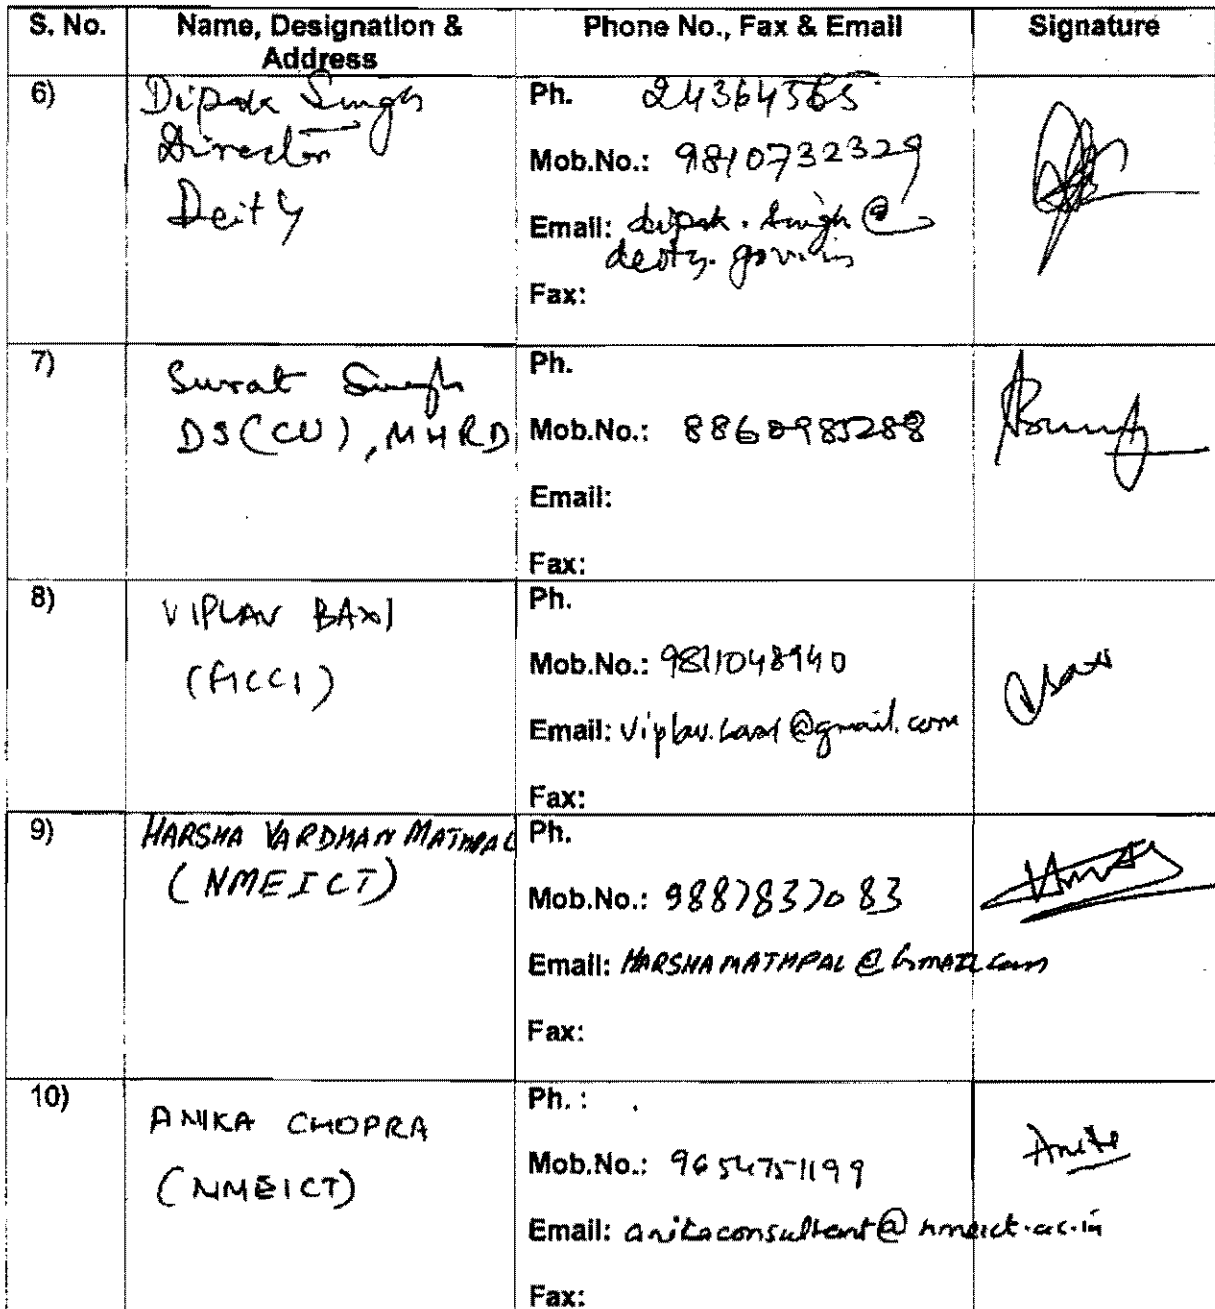 S. No. Name, Designation & Address Phone No., Fax & Email Signature
6) Dipak Singh
Director
Deity
Ph. 24364565
Mob.No.: 9810732329
Email: dipak.singh@
deity.gov.in
Fax:
7) Surat Singh
DS(CU), MHRD
Ph.
Mob.No.: 8860985288
Email:
Fax:
8) VIPLAV BAXI
(FICCI)
Ph.
Mob.No.: 9811048940
Email: viplav.baxi@gmail.com
Fax:
9) HARSHA VARDHAN MATHPAL
(NMEICT)
Ph.
Mob.No.: 9887837083
Email: HARSHAMATHPAL@Gmail.com
Fax:
10) ANIKA CHOPRA
(NMEICT)
Ph. :
Mob.No.: 9654751199
Email: @nmeict.ac.in
Fax: